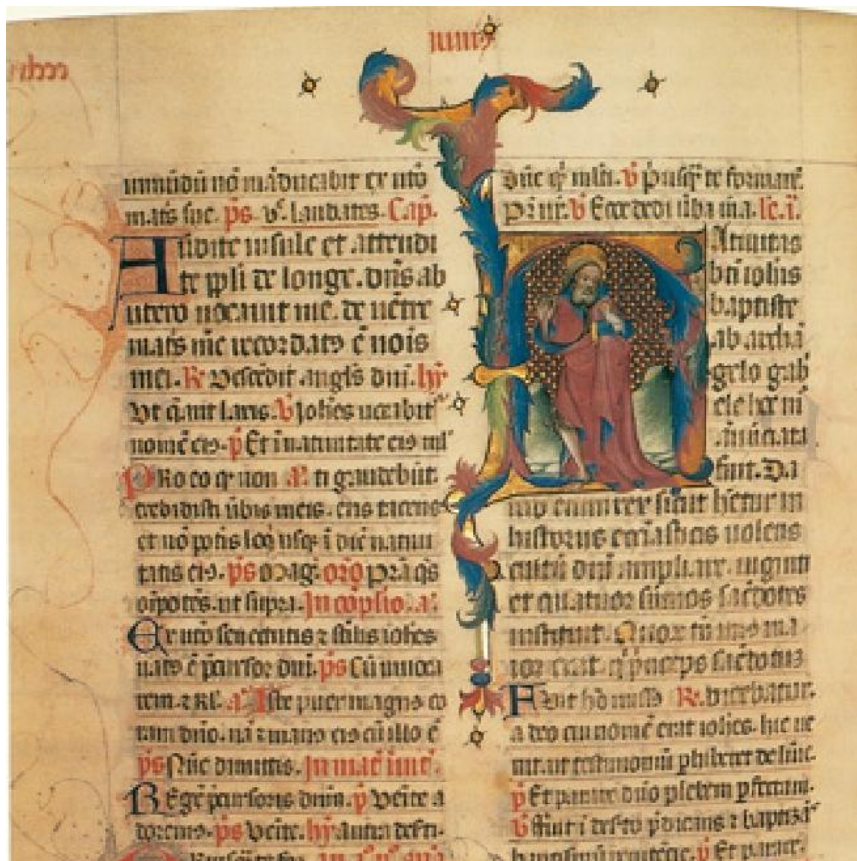 immūdū nō māducabit ex uto
mats sue. ps. v. laudates. Cap.
Audite insule et attendi
te ppli de longe. dns ab
utero uocauit me. de uētre
mats mee recordats ē nois
mei. R Descēdit angls dnī. hȳ
Ut q̄ant laxis. V Johēs uocabit
nomē eis. p Et ī natiuitate eis ml
PRo eo qr non a. ti gaudebūt
credidisti ūbis meis. eris tacens
et nō potis loq̄ usq̄ ī diē natiui
tatis eis. ps Mag. oro prā qs
oīpotēs. ut supra. In cōplsio. a.
Ex uto senectutis z stilis iohēs
nats ē pcursor dnī. ps Cū inuoca
rem. z a. Iste puer magns co
ram dnō. nā z mans eis cū illo ē
ps Nūc dimittis. In mat inuit.
REgē pcursoris dnm. p Venite a
doremus. ps Venite. hȳ Antra deser
V priusq̄ te formarē.
V Ecce dedi ūba mea. le. i.
Natiuitas
bti iohis
baptiste
ab archā
gelo gab
ele hoc m
nūciata
fuit. Da
uid enim rex sicut hētur in
historiis eccliasticis uolens
cultū dnī ampliare. uiginti
et quatuor sūmos sacdotes
instituit. Quor tm unus ma
ior erat. q pnceps sacdotū
Fuit hō missus R. dicebatur.
a deo cui nomē erat iohēs. hic ue
nit. ut testimoniū phiberet de lūie.
p Et parare dno plebem pfectam.
V ffuit ī deserto pdicans z baptizā
baptismū penitēcie. p Et parare.